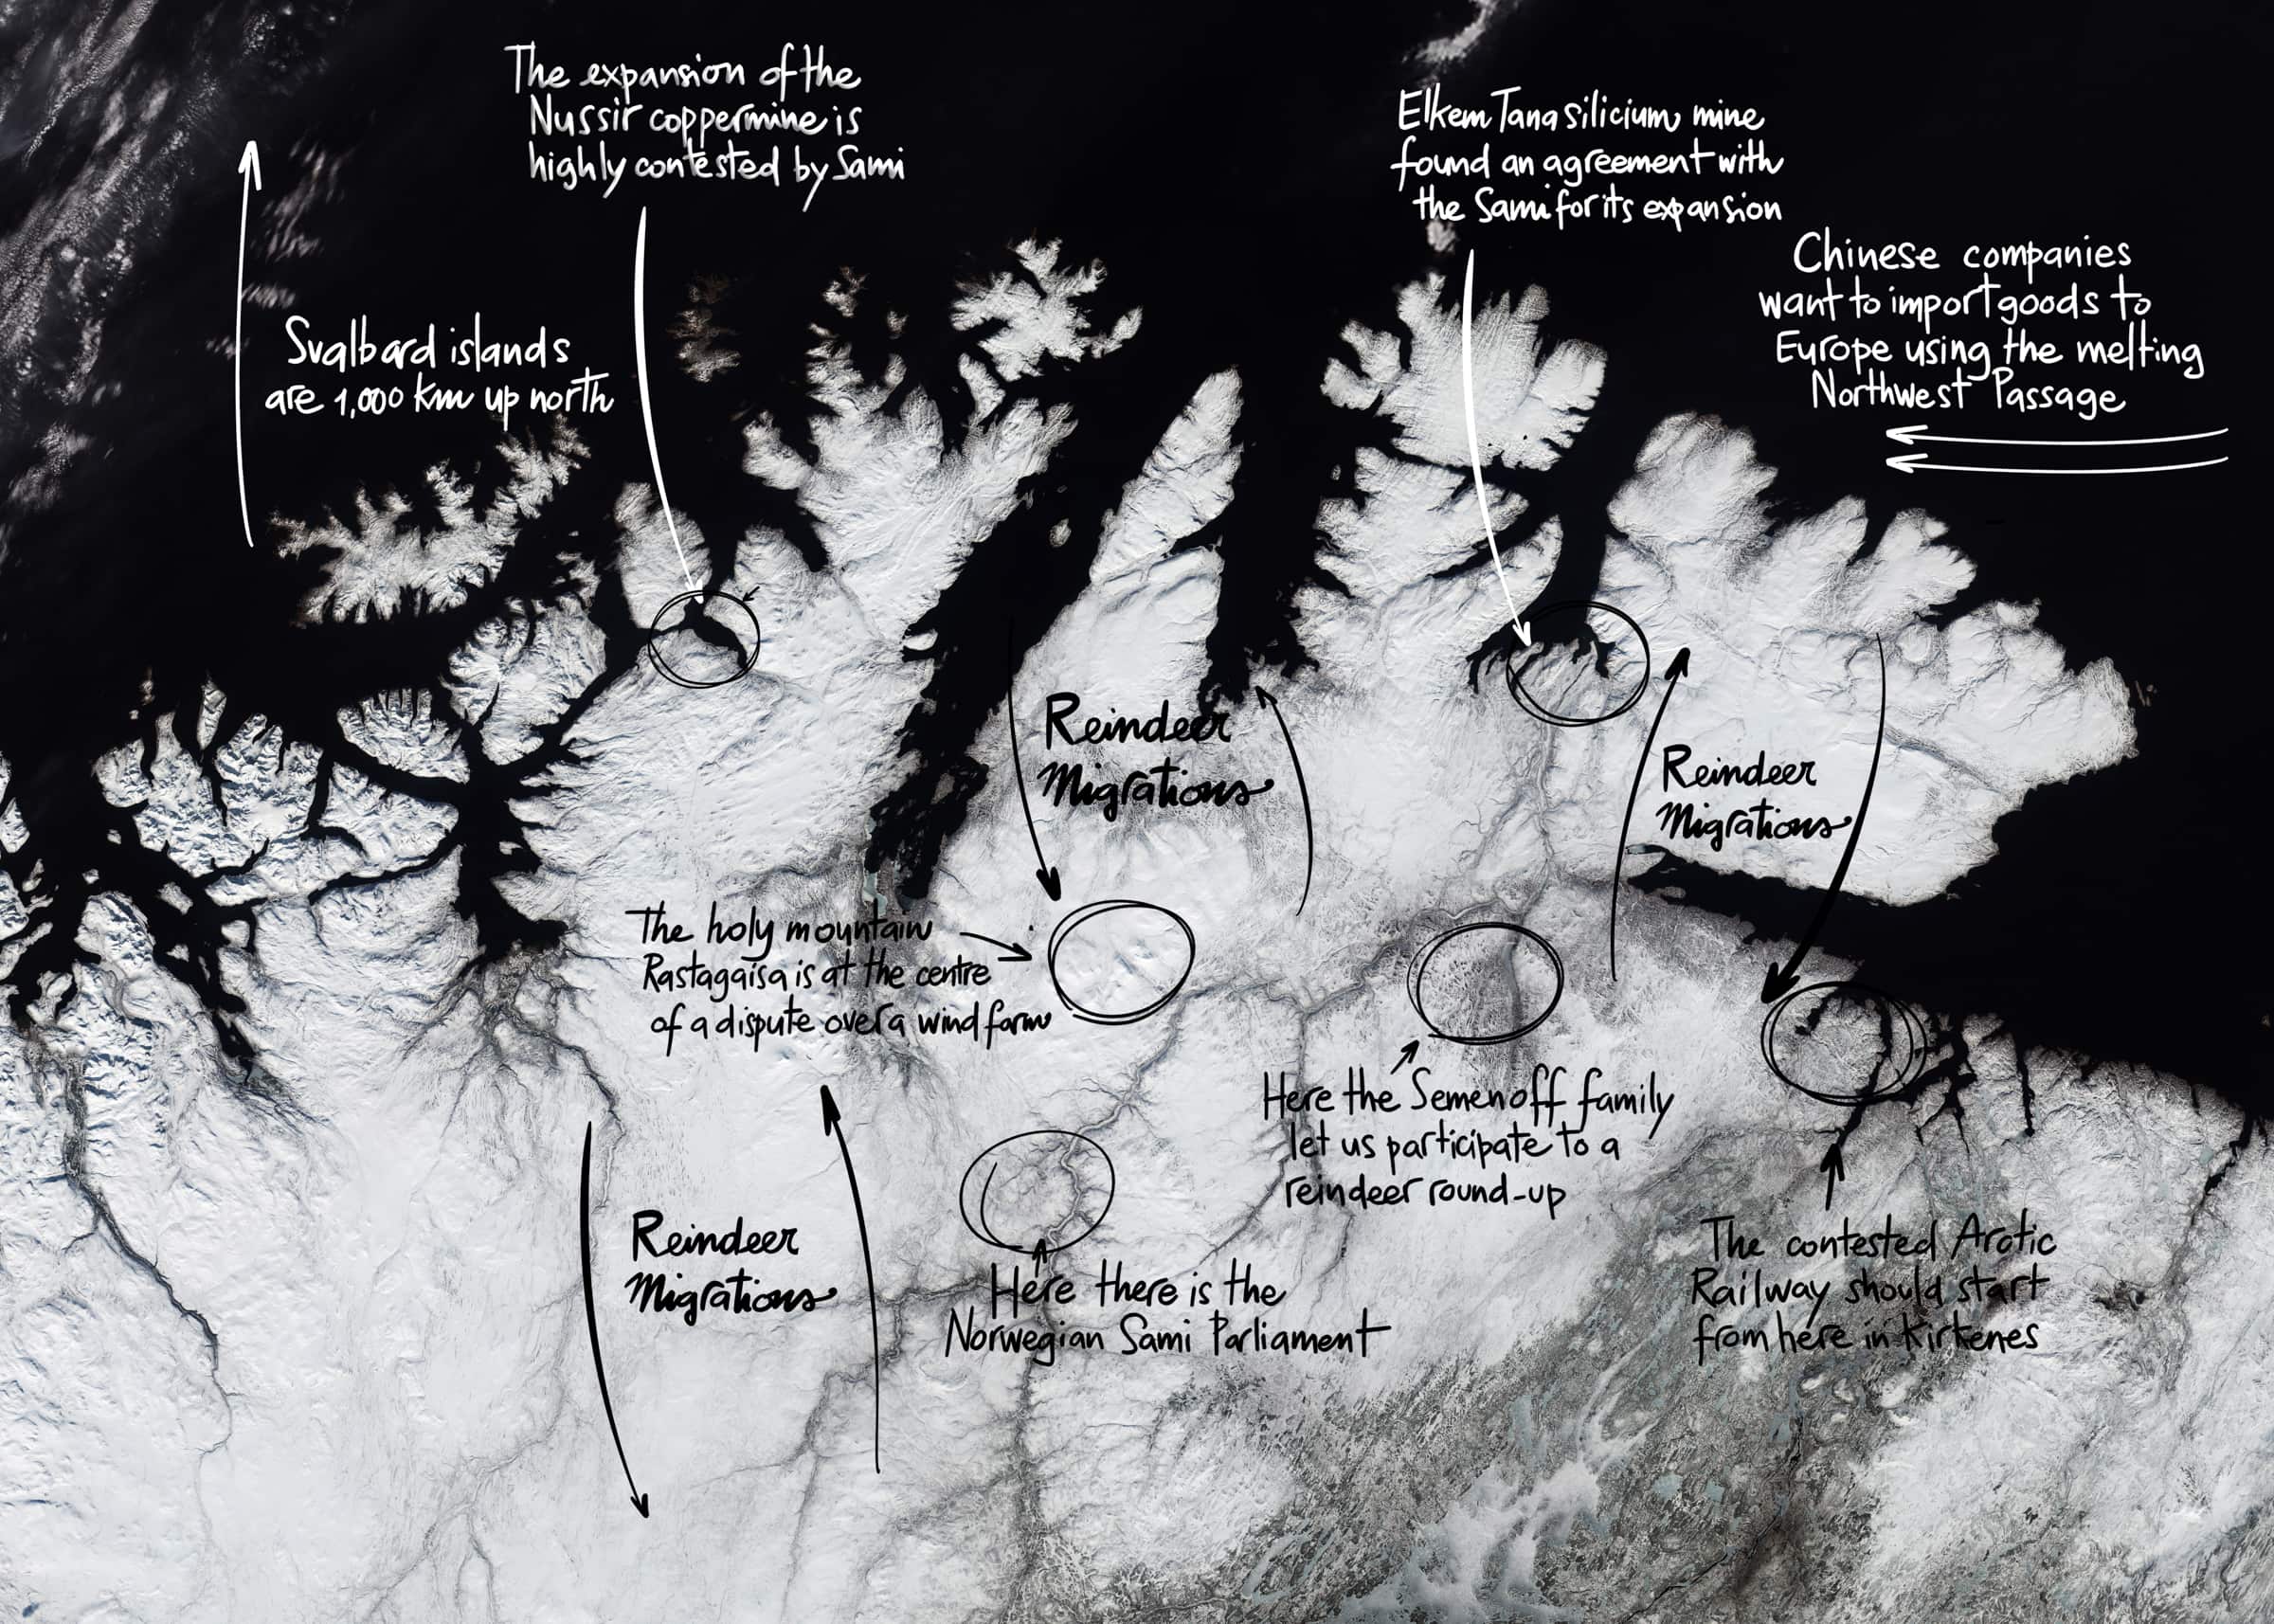 The expansion of the
Nussir coppermine is
highly contested by Sami
Elkem Tana silicium mine
found an agreement with
the Sami for its expansion
Chinese companies
want to import goods to
Europe using the melting
Northwest Passage
Svalbard islands
are 1,000 km up north
Reindeer
Migrations
Reindeer
Migrations
The holy mountain
Rastagaisa is at the centre
of a dispute over a wind farm
Here the Semenoff family
let us participate to a
reindeer round-up
Reindeer
Migrations
Here there is the
Norwegian Sami Parliament
The contested Arctic
Railway should start
from here in Kirkenes